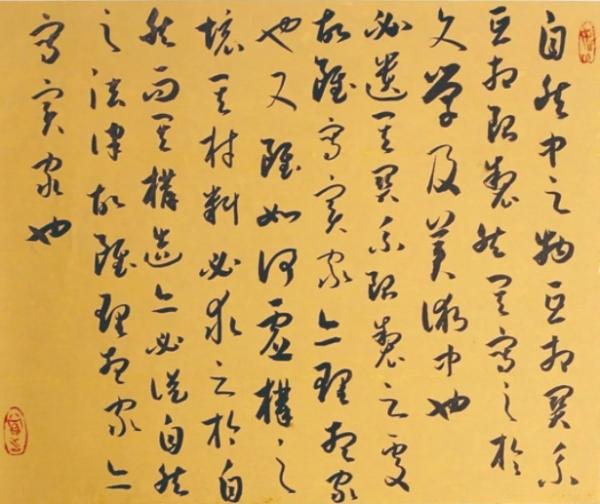 自然中之物互相關系
互相限製然其寫之於
文学及美術中也
必遺其關系限製之處
故雖寫實家亦理想家
也又雖如何虛構之
境其材料必求之於自
然而其構造亦必從自然
之法律故雖理想家亦
寫實家也